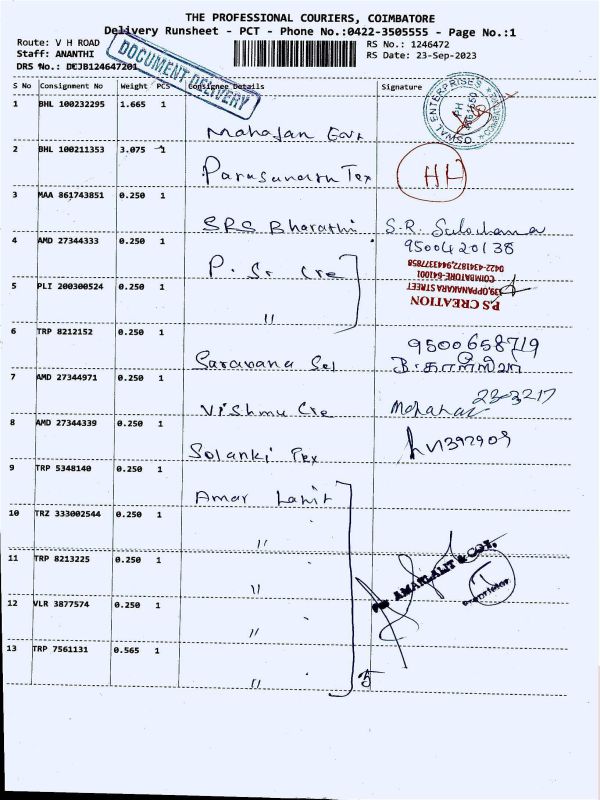 THE PROFESSIONAL COURIERS, COIMBATORE
Delivery Runsheet - PCT - Phone No.:0422-3505555 - Page No.:1
Route: V H ROAD
Staff: ANANTHI
DRS No.: DCJB124647201
RS No.: 1246472
RS Date: 23-Sep-2023
DOCUMENT DELIVERY
S No Consignment No Weight PCS Consignee Details Signature
1 BHL 100232295 1.665 1
2 BHL 100211353 3.075 1
HH
3 MAA 861743851 0.250 1
SRS Bharathi
9500420138
4 AMD 27344333 0.250 1
P. Sr Cre
PS CREATION
139,OPPANAKARA STREET
COIMBATORE-641001
0422-4341872,9443377858
5 PLI 200300524 0.250 1
"
6 TRP 8212152 0.250 1
Saravana Sel
9500658719
7 AMD 27344971 0.250 1
Vishnu Cre
8 AMD 27344339 0.250 1
Solanki Tex
9 TRP 5348140 0.250 1
Amar Lalit
10 TRZ 333002544 0.250 1
"
11 TRP 8213225 0.250 1
"
12 VLR 3877574 0.250 1
"
13 TRP 7561131 0.565 1
"
5
For AMARLALIT & CO.,
Proprietor